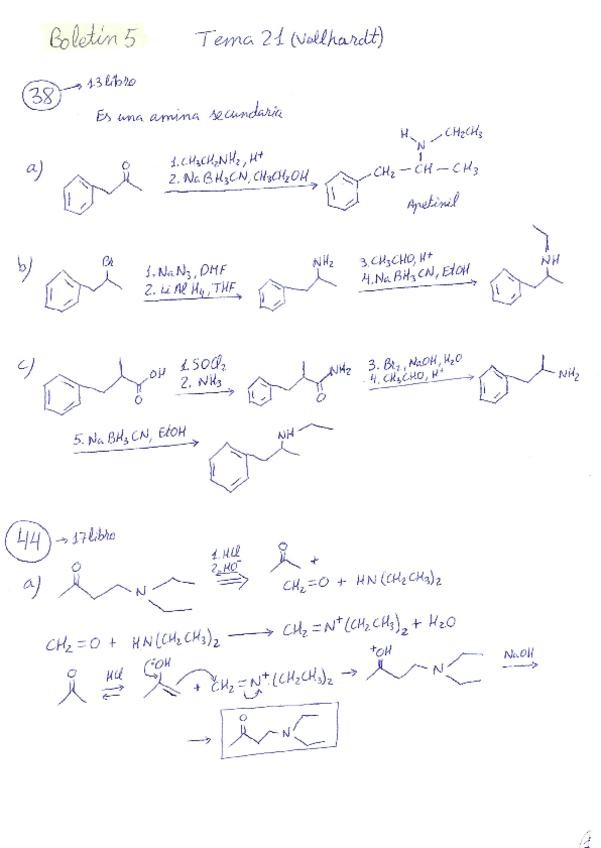 Boletín 5 Tema 21 (Vollhardt)
38 → 13 libro
Es una amina secundaria
a) O 1. CH3CH2NH2, H+
2. NaBH3CN, CH3CH2OH
H N CH2CH3
CH2 — CH — CH3
Apetinil
b) Br 1. NaN3, DMF
2. LiAlH4, THF
NH2 3. CH3CHO, H+
4. NaBH3CN, EtOH
NH
c) OH O 1. SOCl2
2. NH3
NH2 O 3. Br2, NaOH, H2O
4. CH3CHO, H+
NH2
5. NaBH3CN, EtOH NH
44 → 17 libro
a) O N 1. HCl
2. HO-
O +
CH2=O + HN(CH2CH3)2
CH2=O + HN(CH2CH3)2 → CH2=N+(CH2CH3)2 + H2O
O HCl :OH + CH2=N+(CH2CH3)2 → +OH N NaOH
→ O N
1